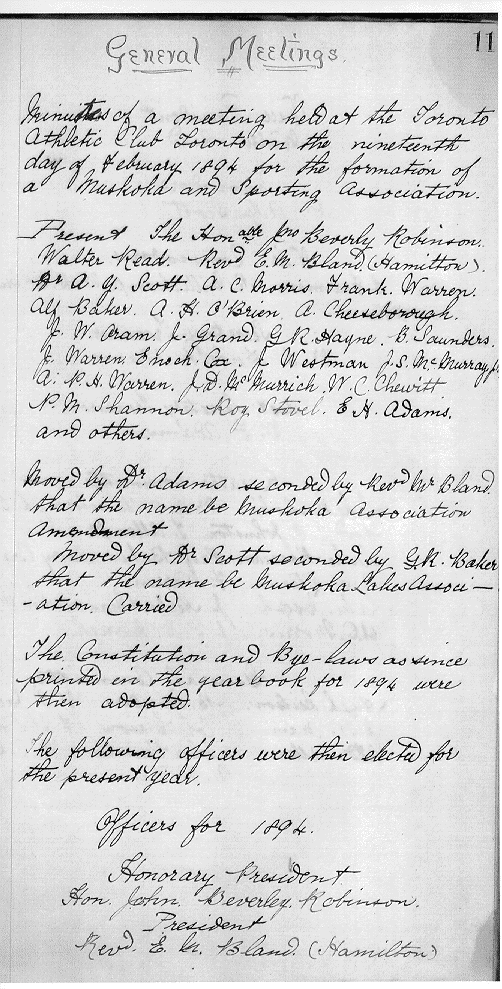 11
General Meetings.
Minutes of a meeting held at the Toronto
Athletic Club Toronto on the nineteenth
day of February 1894 for the formation of
a Muskoka and Sporting Association.
Present The Honable Jno Beverly Robinson.
Walter Read. Revd E. M. Bland. (Hamilton).
Dr A. Y. Scott. A. C. Morris. Frank. Warren.
Alf Baker. A. H. O'Brien. A. Cheeseborough.
J. W. Oram. J. Grand. G. R. Hayne. B. Saunders.
J. Warren. Enoch. Cox. J. Westman J. S. McMurray, Jr
A. P. H. Warren. J. D. McMurrich. W. C. Chewitt
P. M. Shannon. Roy. Stovel. E H. Adams.
and others.
Moved by Dr. Adams seconded by Revd Mr Bland.
that the name be Muskoka Association
Amendment
Moved by Dr Scott seconded by G. R. Baker
that the name be Muskoka Lakes Associ-
-ation. Carried
The Constitution and Bye-laws as since
printed in the year book for 1894 were
then adopted.
The following officers were then elected for
the present year.
Officers for 1894.
Honorary President
Hon. John. Beverley. Robinson.
President
Revd. E. M. Bland. (Hamilton)